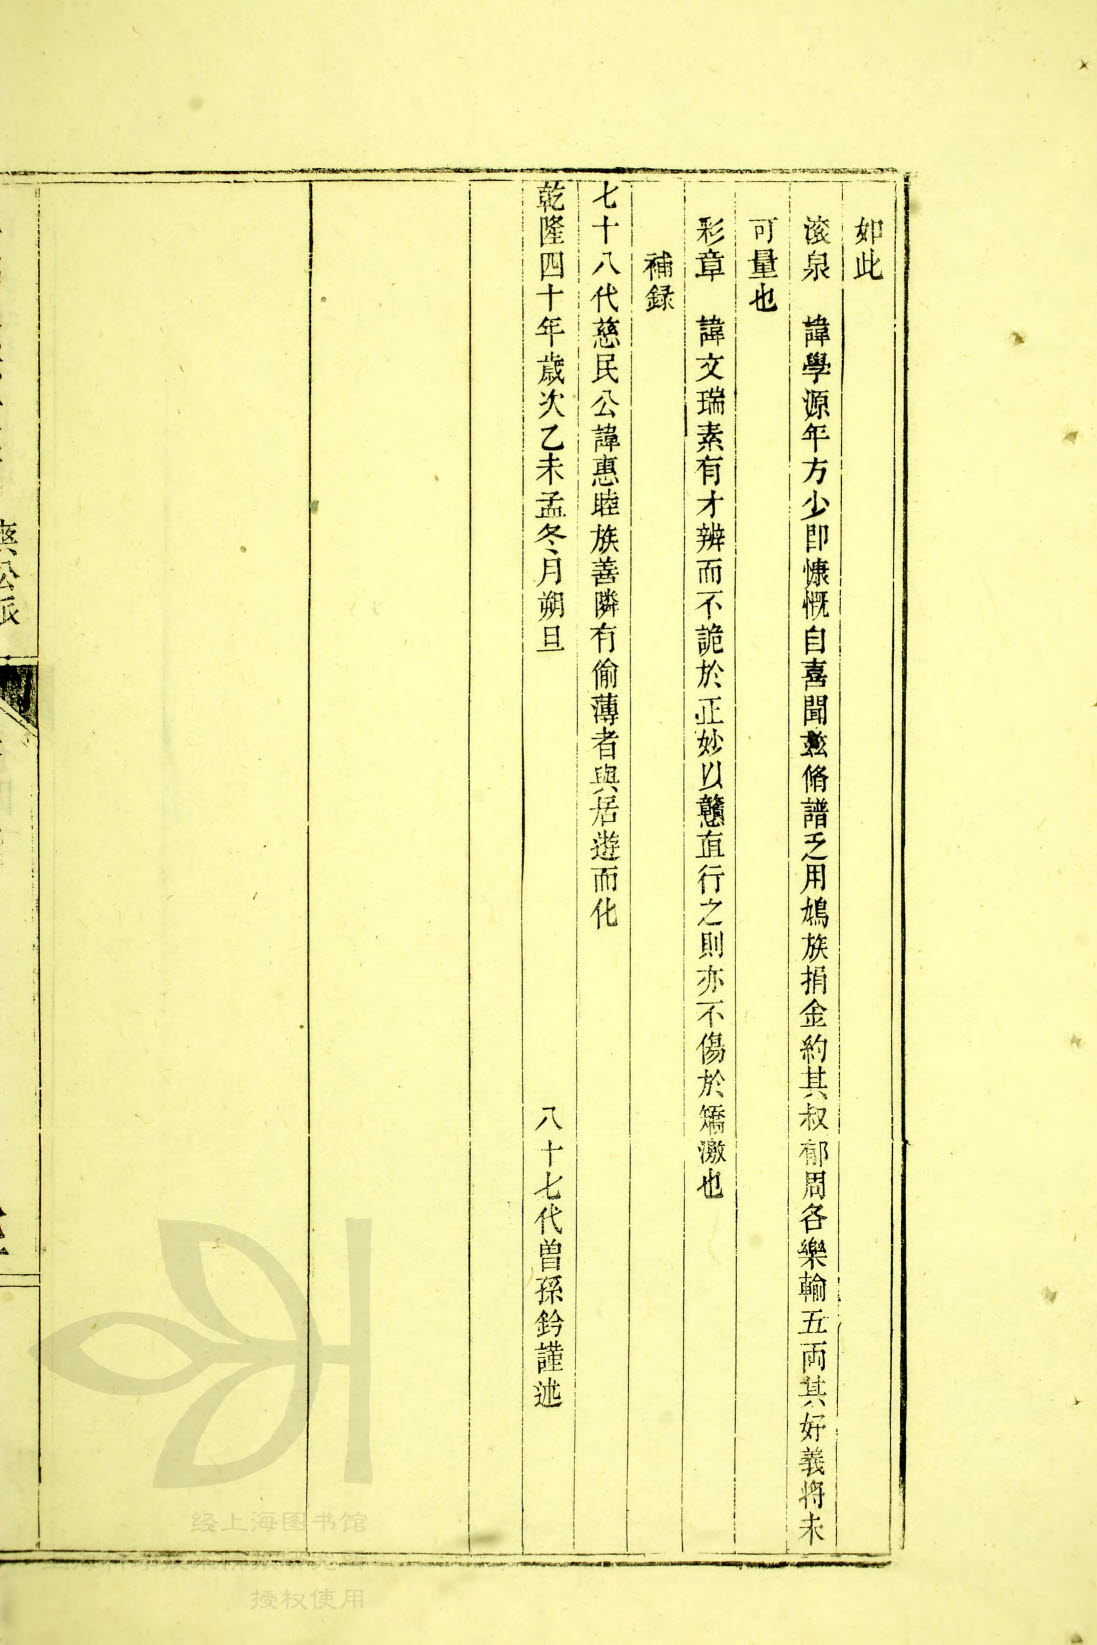 如此
滚泉　諱學源年方少即慷慨自喜聞茲脩譜乏用鳩族捐金約其叔郁周各樂輸五両其好義将未
可量也
彩章　諱文瑞素有才辨而不詭於正妙以戇直行之則亦不傷於矯激也
補録
七十八代慈民公諱惠睦族善隣有偷薄者與居遊而化
乾隆四十年歳次乙未孟冬月朔旦
八十七代曽孫鈐謹述
公派
经上海图书馆
授权使用